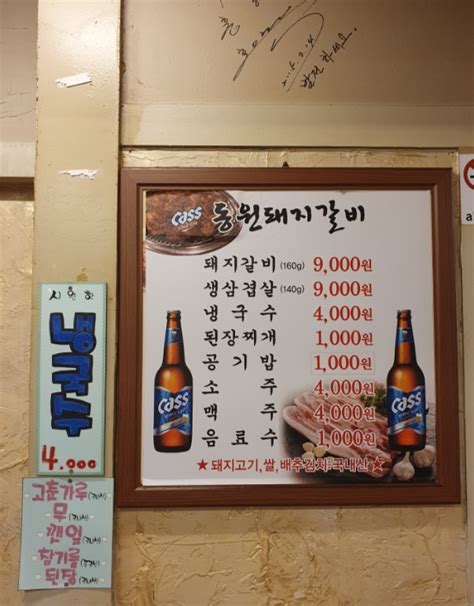 2015.2.14
발전하세요.
cass 통원돼지갈비
돼지갈비 (160g) 9,000원
생삼겹살 (140g) 9,000원
냉국수 4,000원
된장찌개 1,000원
공기밥 1,000원
소주 4,000원
맥주 4,000원
음료수 1,000원
★ 돼지고기,쌀,배추김치:국내산 ★
cass
cass
시원한
냉국수
4.000
고춘가루
무
깻잎
참기름
된당
a